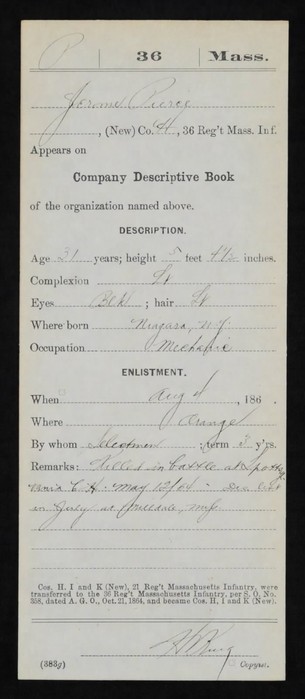 P | 36 | Mass.
Jerome Peirce
, (New) Co. H, 36 Reg't Mass. Inf.
Appears on
Company Descriptive Book
of the organization named above.
DESCRIPTION.
Age 31 years; height 5 feet 4½ inches.
Complexion Lt
Eyes Blk ; hair Lt
Where born Niagara, N.Y.
Occupation Mechanic
ENLISTMENT.
When Aug 4 , 186 .
Where Orange
By whom Selectmen ; term 3 y'rs.
Remarks: Killed in battle at Spotts
vania C.H. May 12/64
in July at
Cos. H, I and K (New), 21 Reg't Massachusetts Infantry, were
transferred to the 36 Reg't Massachusetts Infantry, per S. O. No.
358, dated A. G. O., Oct. 21, 1864, and became Cos. H, I and K (New).
(383g) Copyist.